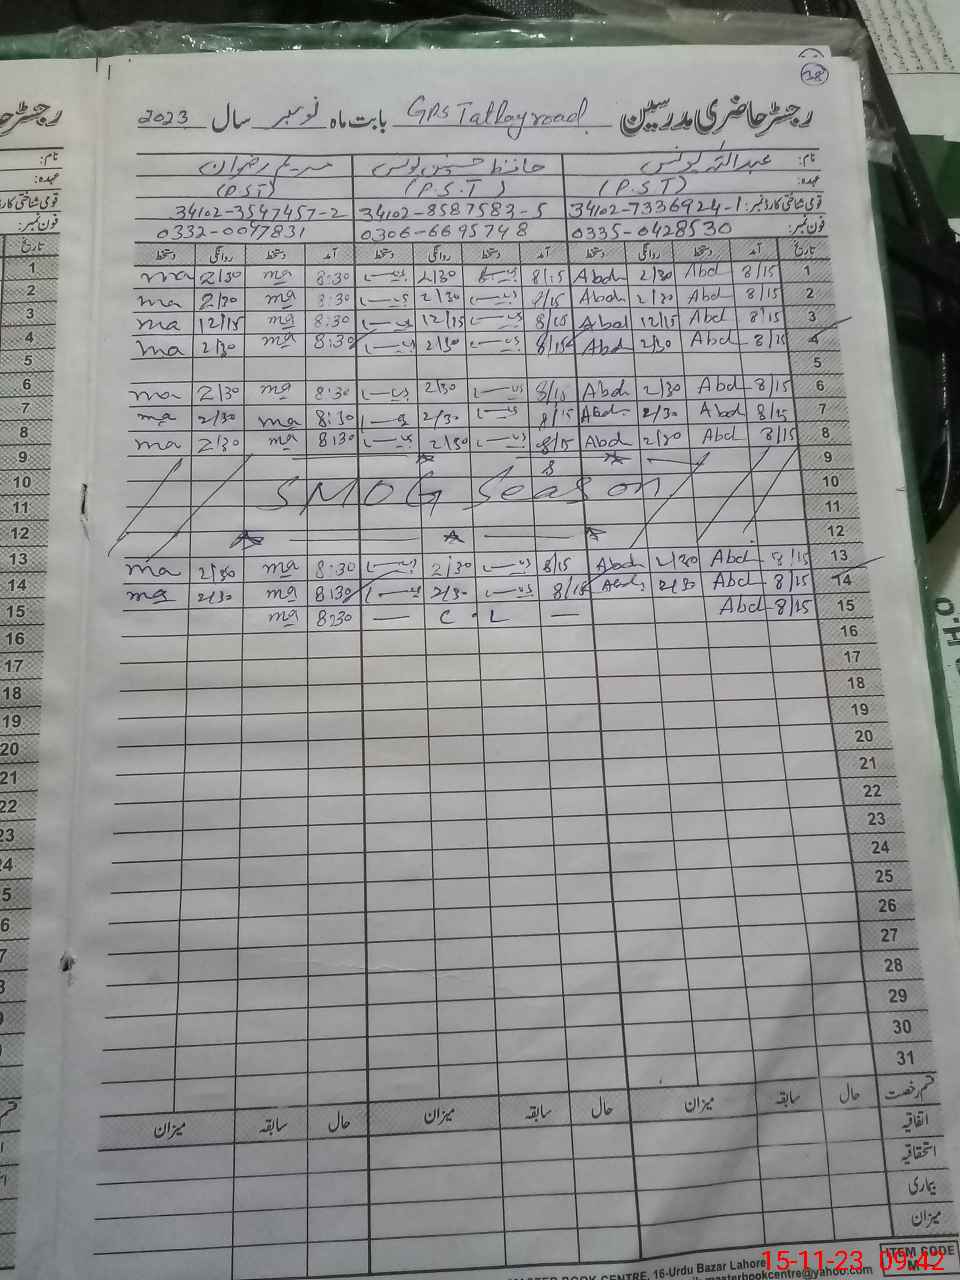 38
رجسٹر حاضری مدرسین GPS Tatlay road بابت ماہ نومبر سال 2023
نام: عبداللہ یونس حافظ حسنین یونس مریم رضوان
عہدہ: (P.S.T) (P.S.T) (P.S.T)
قومی شناختی کارڈ نمبر: 34102-7336924-1 34102-8587583-5 34102-3547457-2
فون نمبر: 0335-0428530 0306-6695748 0332-0047831
تاریخ آمد دستخط روانگی دستخط آمد دستخط روانگی دستخط آمد دستخط روانگی دستخط
1 8/15 Abd 2/30 Abdh 8/15 2/30 8:30 ma 2/30 ma
2 8/15 Abd 2/30 Abdh 8/15 2/30 8:30 ma 2/30 ma
3 8/15 Abd 12/15 Abd 8/15 12/15 8:30 ma 12/15 ma
4 8/15 Abd 2/30 Abdh 8/15 2/30 8:30 ma 2/30 ma
5
6 8/15 Abd 2/30 Abdh 8/15 2/30 8:30 ma 2/30 ma
7 8/15 Abd 2/30 Abd 8/15 2/30 8:30 ma 2/30 ma
8 8/15 Abd 2/30 Abd 8/15 2/30 8:30 ma 2/30 ma
9 8
10 SMOG Season
11
12
13 8/15 Abd 2/30 Abdh 8/15 2/30 8:30 ma 2/30 ma
14 8/15 Abd 2/30 8/15 2/30 8:30 ma 2/30 ma
15 8/15 Abd — C.L — 8:30 ma
16
17
18
19
20
21
22
23
24
25
26
27
28
29
30
31
قسم رخصت حال سابقہ میزان حال سابقہ میزان حال سابقہ میزان
اتفاقیہ
استحقاقیہ
بیماری
میزان
ITEM CODE
BOOK CENTRE, 16-Urdu Bazar Lahore
masterbookcentre@yahoo.com
15-11-23 09:42